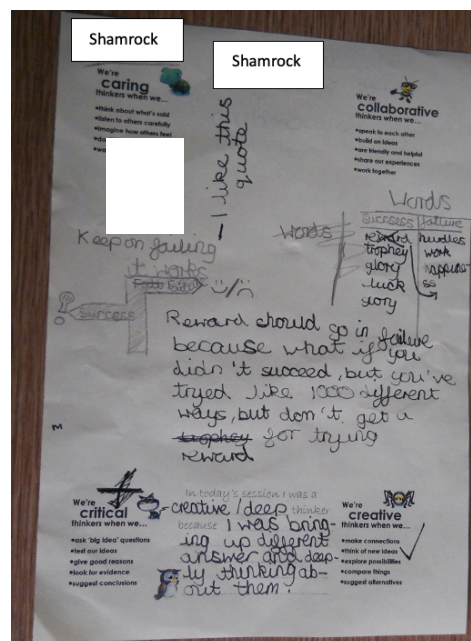 Shamrock
Shamrock
We're
caring
thinkers when we...
•think about what's said
•listen to others carefully
•imagine how others feel
I like this
quote
We're
collaborative
thinkers when we...
•speak to each other
•build on ideas
•are friendly and helpful
•share our experiences
•work together
Keep on failing
it works
Success
Words
Words
Success failure
reward hurdles
trophey work
glory
luck
glory
Reward should go in failure
because what if you
didn't succeed, but you've
tryed like 1000 different
ways, but don't get a
trophey for trying
reward
We're
critical
thinkers when we...
•ask 'big idea' questions
•test our ideas
•give good reasons
•look for evidence
•suggest conclusions
In today's session I was a
creative/deep thinker
because I was bring-
ing up different
answer and deep-
ly thinking ab-
out them!
We're
creative
thinkers when we...
•make connections
•think of new ideas
•explore possibilities
•compare things
•suggest alternatives